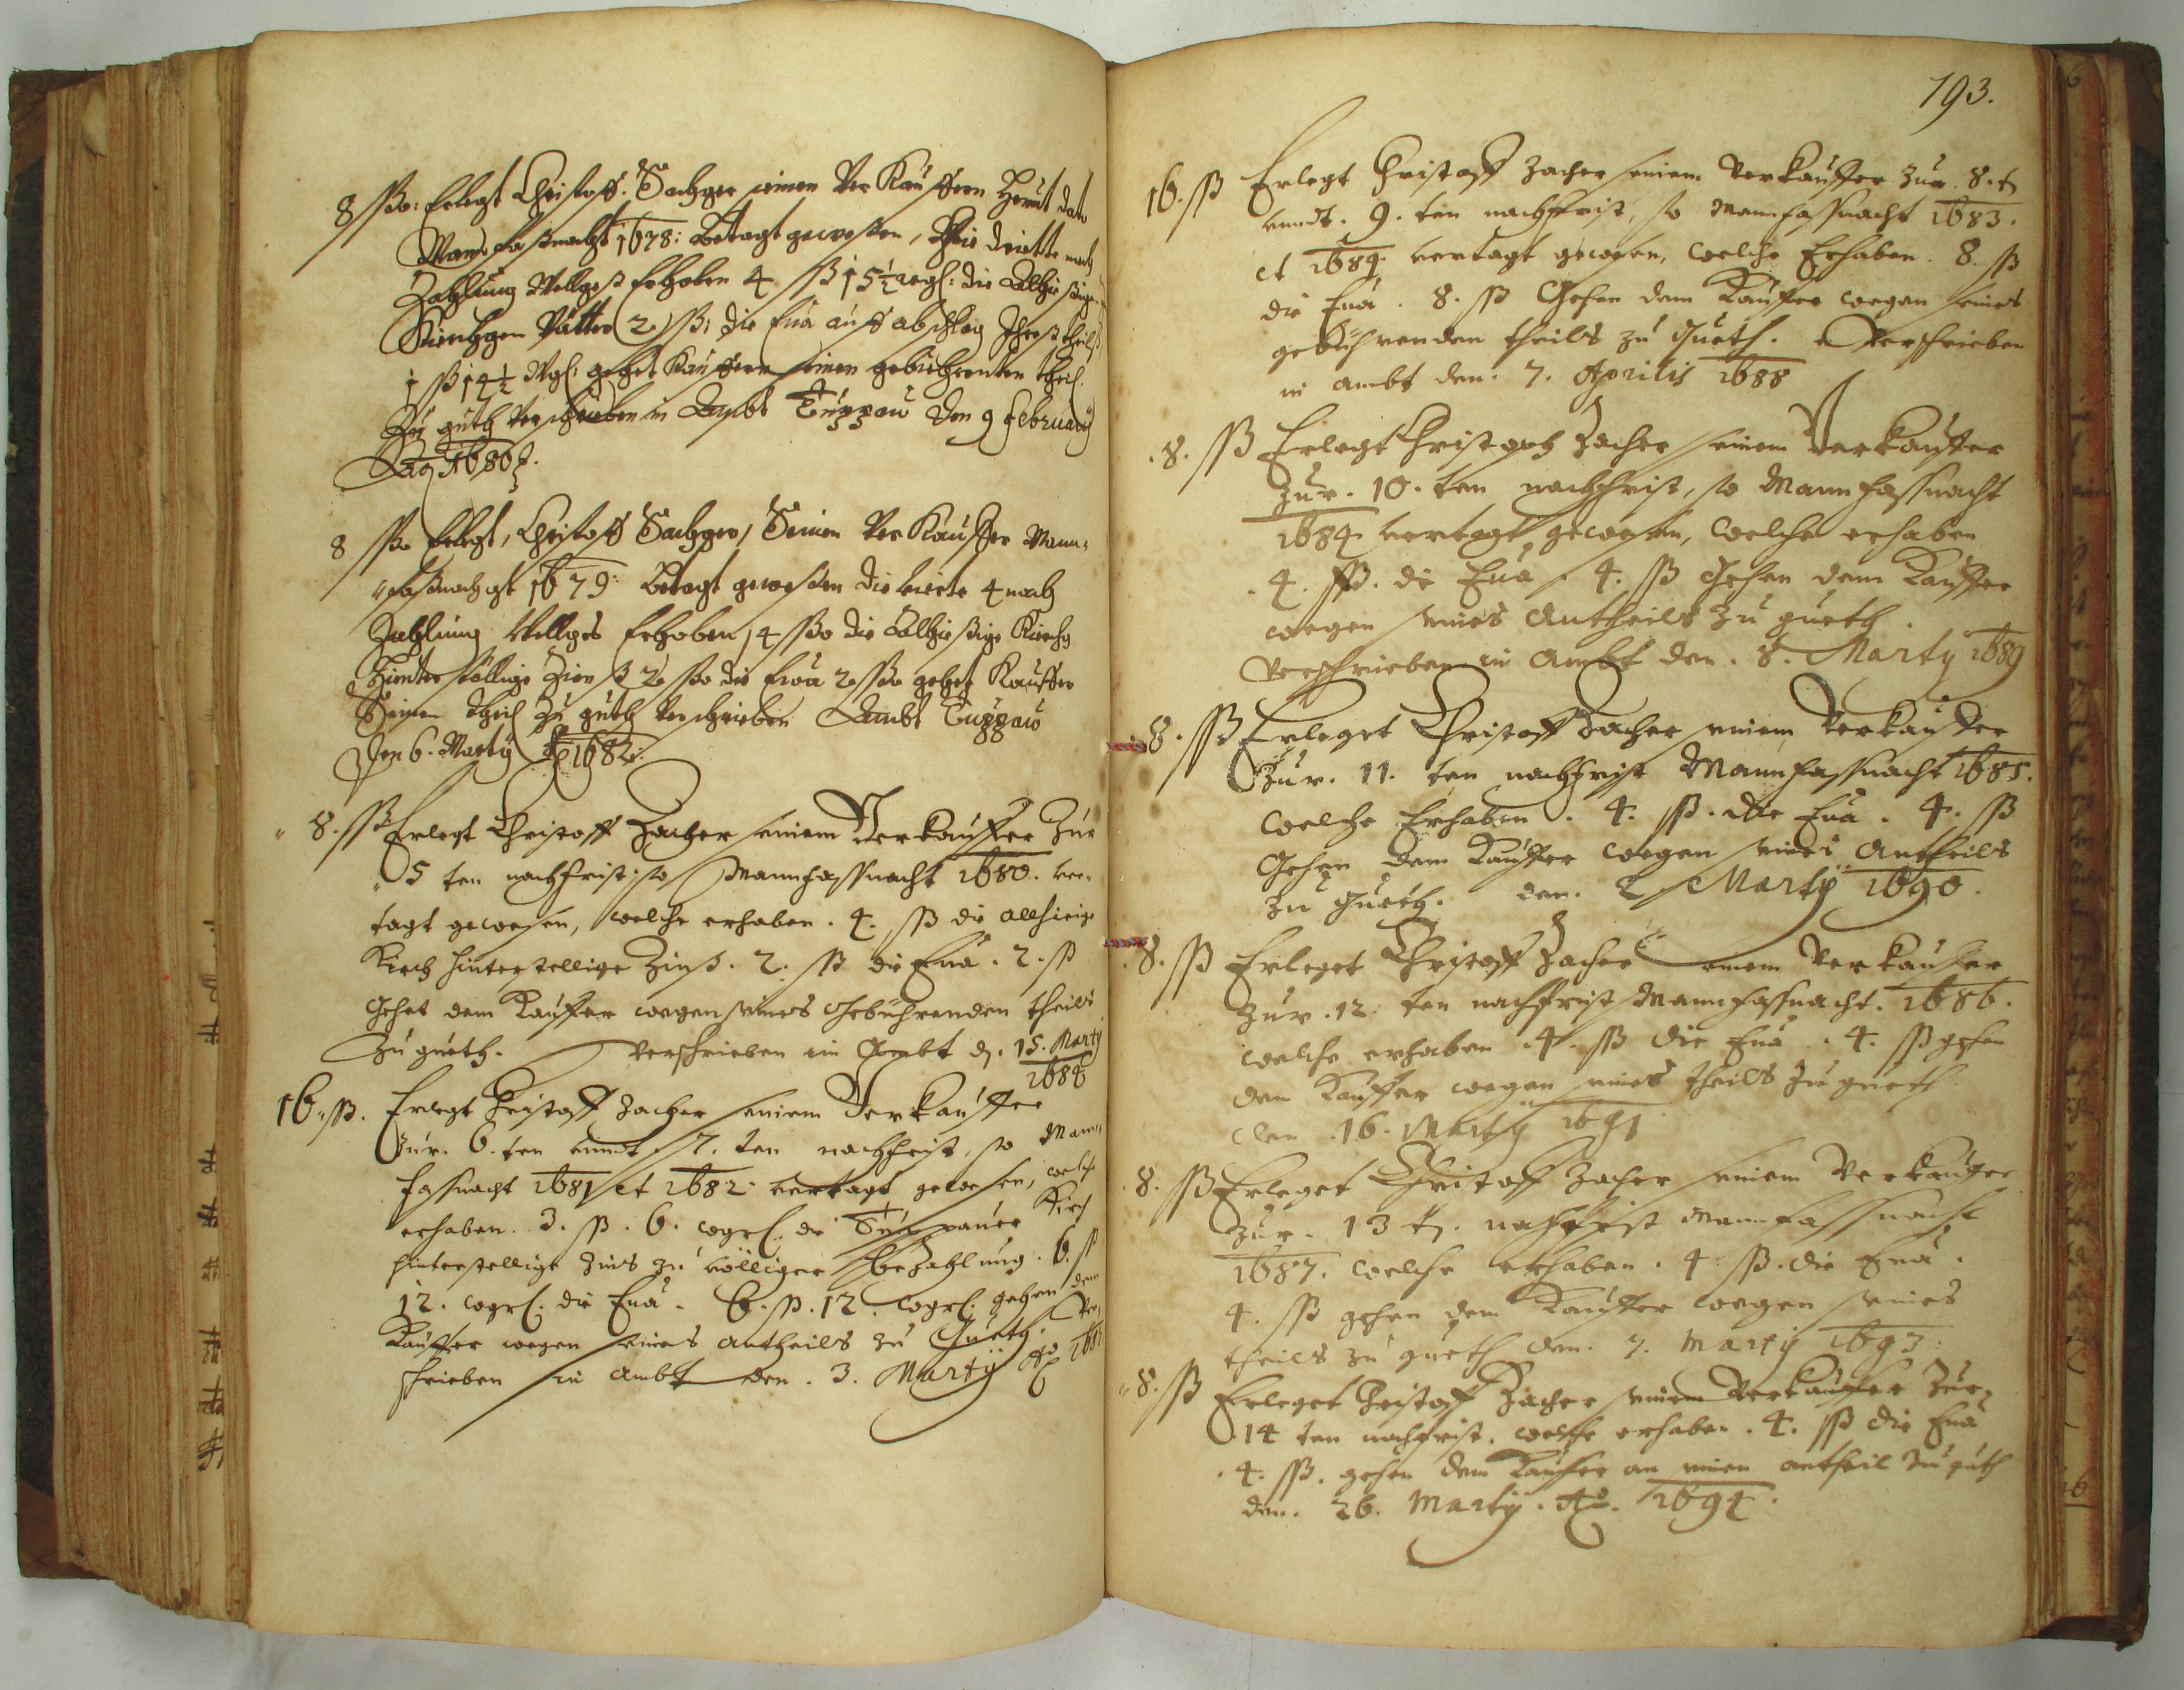 8 ßo: Erlegt Christoff Sachger seinen Verkauffern Heut dato
Mannfaßnacht 1678: Betagt gewesen, die dritte nach
Zahlung Wellges Erhoben 4 ß 15½ wgl: die Alhießigen
Kirchen Vätter 2 ß: die Eua auff abschlag Ihres theilß
1 ß 14½ Wgl: gehet Kauffern seinen gebiehrenten theil
Zu guth Verschrieben in Ambt Tuppau den 9 February
Ao 1680.
8 ßo Erlegt, Christoff Sachger, Seinen Verkauffer Mann-
faßnacht 1679: Betagt gewesen die vierte 4 nach
Zahlung Wellges Erhoben, 4 ßo die Alhießige Kirch
Hinterstöllige Zienß 2 ßo die Eva 2 ßo gehet Kauffer
Seinen theil Zu guth Verschrieben Ambt Tuppau
Den 6. Marty Ao 1682.
8. ß Erlegt Christoff Zacher seinem Verkauffer Zur
5 ten nachfrist, so Mannfassnacht 1680. ver-
tagt gewesen, welche erhaben. 4. ß die allhieige
Kirch hinterstellige Zinß. 2. ß die Eua. 2. ß
Gehet dem Kauffer wegen seines Gebührenden theils
Zu gueth. Verschrieben im Ambt d. 15. Marty
1684
16. ß. Erlegt Christoff Zacher seinem Verkauffer
Zur. 6. ten unndt 7. ten nachfrist, so Mann
fassnacht 1681 et 1682 vertagt gewesen, welche
erhaben. 3. ß. 6. wgrl. die Tuppauer Kirch
hinterstellige Zins zu völliger Bezahlung. 6. ß
12. wgrl. die Eua. 6. ß. 12. wgrl. gehen dem
Kauffer wegen seines Antheils zu Gueth. Ver
schrieben in Ambt den. 3. Martÿ Ao
193.
16. ß Erlegt Christoff Zacher seinem Verkauffer Zur. 8. t
unndt. 9. ten nachfrist, so Mannfassnacht 1683.
et 1684 vertagt gewesen, welche Erhaben. 8. ß
die Eua. 8. ß Gehen dem Kauffer wegen seines
gebührenden theils zu Gueth. Verschrieben
in ambt den. 7. Aprilis 1688
8. ß Erlegt Christoph Zacher seinem Verkauffer
Zur. 10. ten nachfrist, so Mannfassnacht
1684 vertagt gewesen, welche erhaben
4. ß. die Eua. 4. ß Gehen dem Kauffer
wegen seines Antheils zu gueth.
Verschrieben in Ambt den. 8. Marty 1689
8. ß Erleget Christoff Zacher seinem Verkauffer
Zur. 11. ten nachfrist Mannfassnacht 1685.
welche Erhaben. 4. ß. die Eua. 4. ß
Gehen dem Kauffer wegen seines Antheils
zu Gueth. den. 2. Martÿ 1690.
8. ß Erleget Christoff Zacher seinem Verkauffer
Zur. 12. ten nachfrist Mannfassnacht. 1686.
welche erhaben. 4. ß die Eua. 4. ß gehen
dem Kauffer wegen seines theils zu gueth
den. 16. Martÿ 1691
8. ß Erleget Christoff Zacher seinem Verkauffer
Zur. 13 t. nachfrist Mannfassnacht
1687. welche erhaben. 4. ß. die Eua.
4. ß gehen dem Kauffer wegen seines
theils zu gueth den. 7. Martÿ 1693.
8. ß Erleget Christoff Zacher seinem Verkauffer Zur.
14 ten nachfrist. welche erhaben. 4. ß die Eua
4. ß. gehen dem Kauffer an seinen antheil zu guth
den. 26. Martÿ. Ao. 1694.